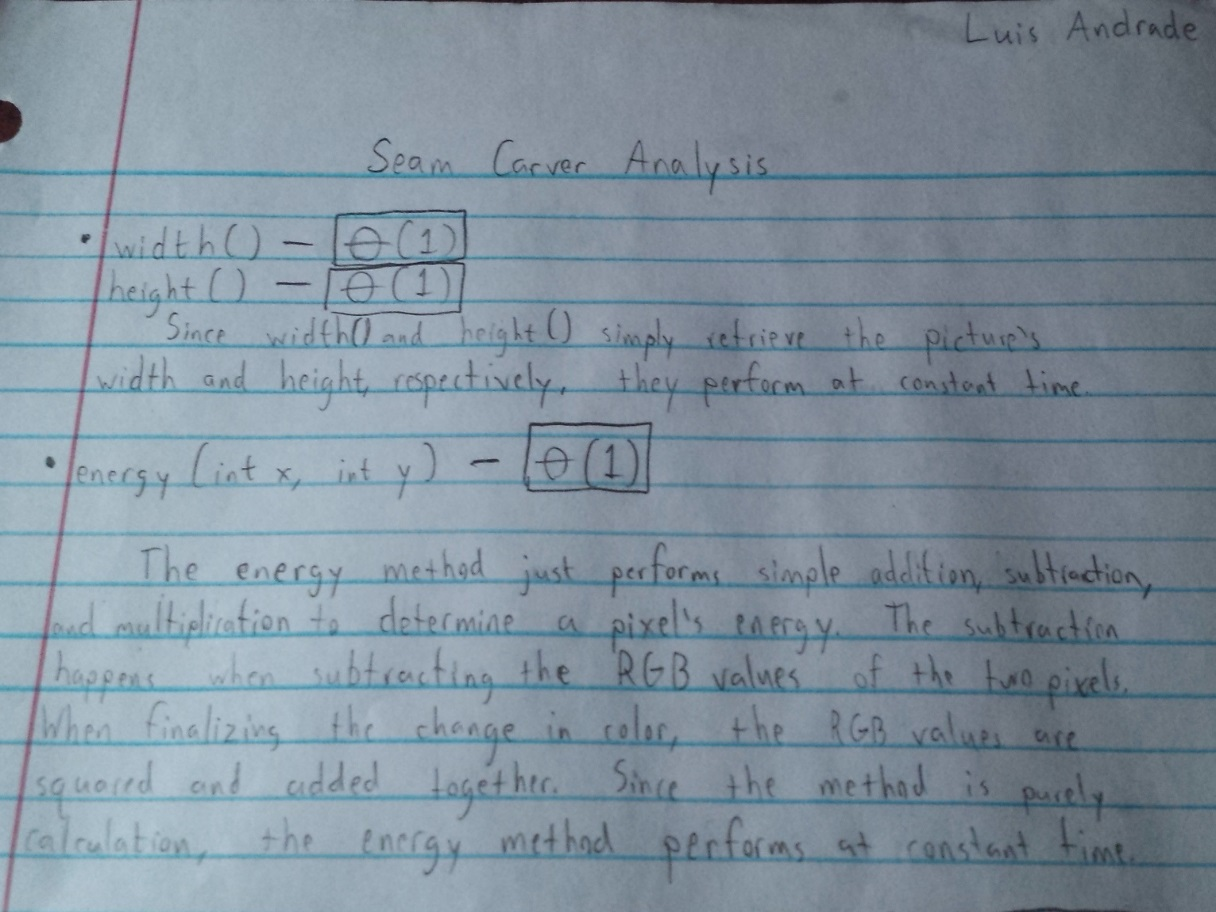 Luis Andrade
Seam Carver Analysis
• width() – Θ(1)
height() – Θ(1)
Since width() and height() simply retrieve the picture's
width and height, respectively, they perform at constant time.
• energy (int x, int y) – Θ(1)
The energy method just performs simple addition, subtraction,
and multiplication to determine a pixel's energy. The subtraction
happens when subtracting the RGB values of the two pixels.
When finalizing the change in color, the RGB values are
squared and added together. Since the method is purely
calculation, the energy method performs at constant time.